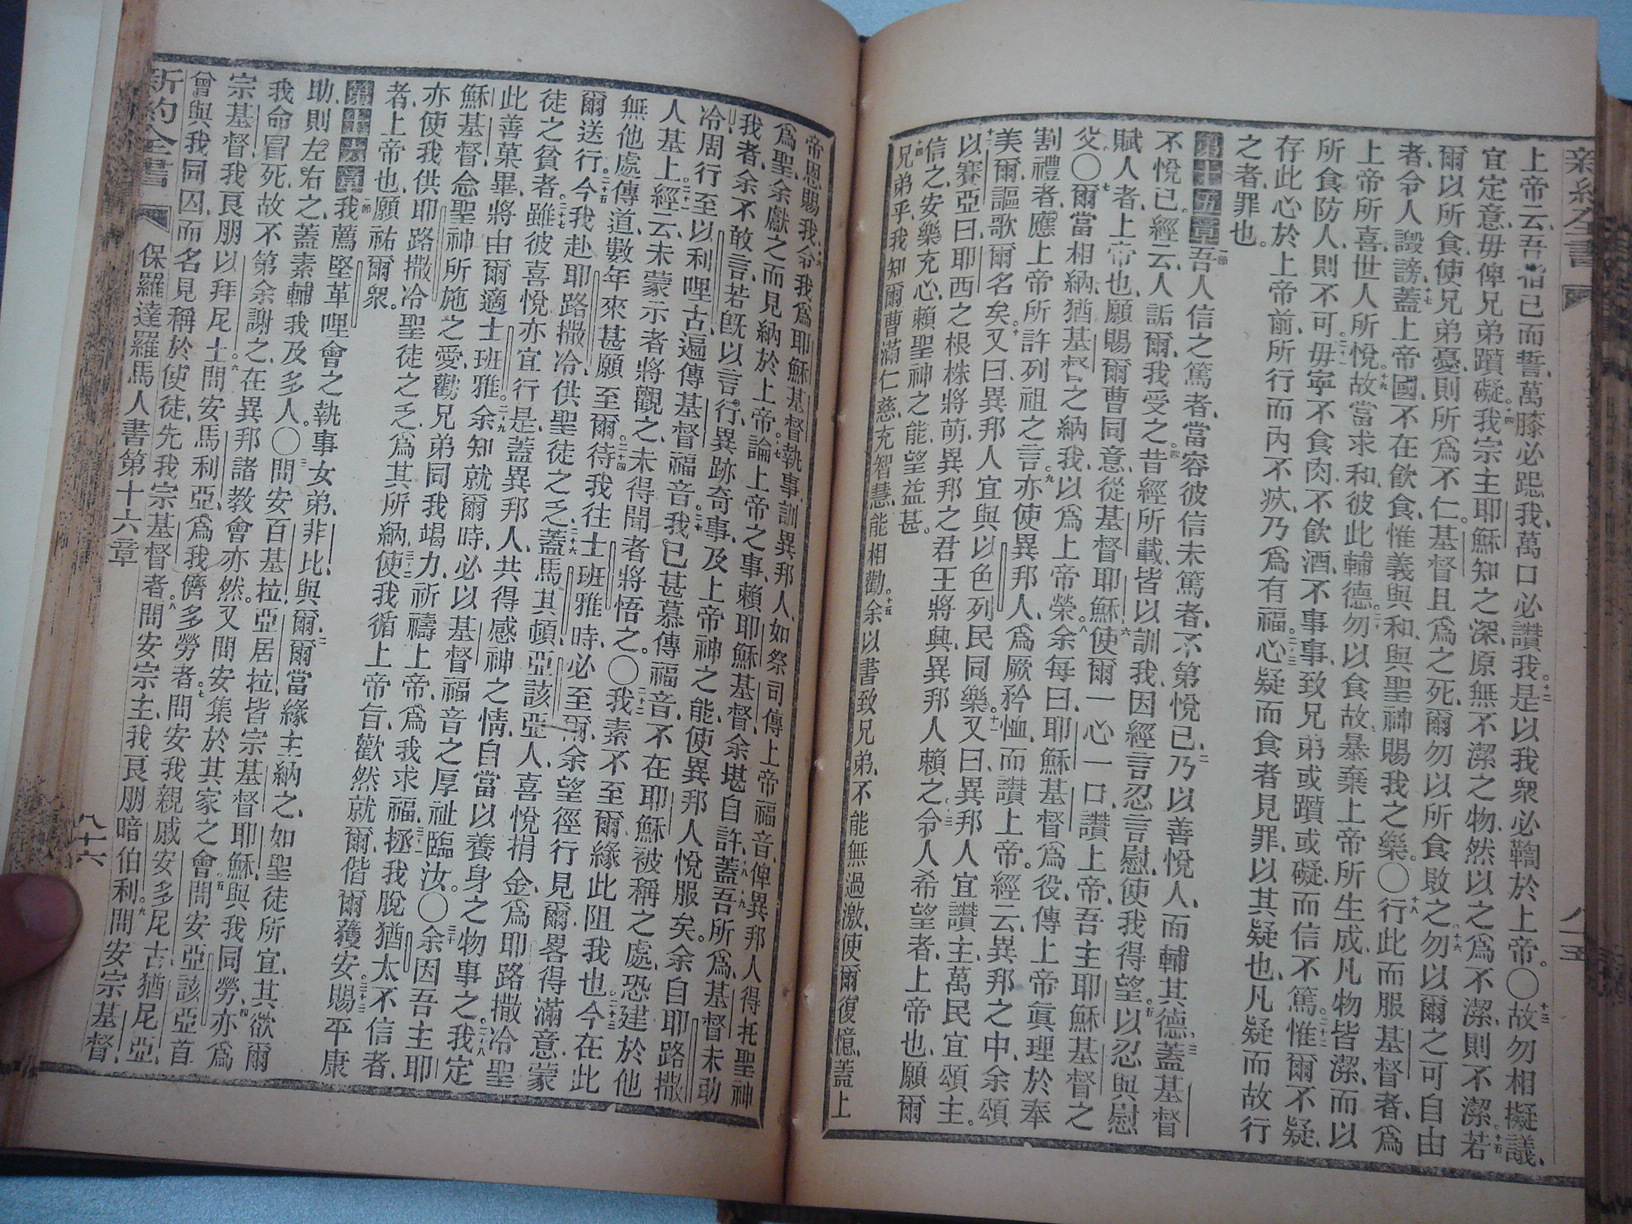 新約全書
八十五
上帝云、吾指己而誓、萬膝必跽我、萬口必讚我。十二是以我衆必鞫於上帝。〇十三故勿相擬議、
宜定意、毋俾兄弟躓礙。十四我宗主耶穌知之深、原無不潔之物、然以之爲不潔、則不潔。十五若
爾以所食、使兄弟憂、則所爲不仁。基督且爲之死、爾勿以所食敗之。十六勿以爾之可自由
者、令人譭謗。十七蓋上帝國、不在飲食、惟義與和與聖神賜我之樂。〇十八行此而服基督者、爲
上帝所喜、世人所悅。十九故當求和、彼此輔德。二十勿以食故、暴棄上帝所生成、凡物皆潔、而以
所食防人、則不可。二十一毋寧不食肉、不飲酒、不事事、致兄弟或躓或礙、而信不篤。二十二惟爾不疑、
存此心於上帝前、所行而內不疚、乃爲有福。二十三心疑而食者見罪、以其疑也、凡疑而故行
之者、罪也。
第十五章一節吾人信之篤者、當容彼信未篤者、不第悅己。二乃以善悅人、而輔其德。三蓋基督
不悅己、經云、人詬爾、我受之。四昔經所載、皆以訓我、因經言忍言慰、使我得望。五以忍與慰
賦人者、上帝也、願賜爾曹同意、從基督耶穌。六使爾一心一口、讚上帝、吾主耶穌基督之
父。〇七爾當相納、猶基督之納我、以爲上帝榮。八余每曰、耶穌基督爲役、傳上帝眞理於奉
割禮者、應上帝所許列祖之言。九亦使異邦人、爲厥矜恤而讚上帝。經云、異邦之中、余頌
美爾、謳歌爾名矣。十又曰、異邦人宜與以色列民同樂。十一又曰、異邦人宜讚主、萬民宜頌主。
十二以賽亞曰、耶西之根株將萌、異邦之君王將興、異邦人賴之。十三令人希望者、上帝也、願爾
信之、安樂充心、賴聖神之能、望益甚。
十四兄弟乎、我知爾曹滿仁慈、充智慧、能相勸。十五余以書致兄弟、不能無過激、使爾復憶、蓋上
帝恩賜我。十六令我爲耶穌基督執事、訓異邦人、如祭司傳上帝福音、俾異邦人得托聖神
爲聖、余獻之而見納於上帝。十七論上帝之事、賴耶穌基督、余堪自許。十八蓋吾所爲、基督未助
我者、余不敢言、若旣以言行。十九異跡奇事、及上帝神之能、使異邦人悅服矣。余自耶路撒
冷周行、至以利哩古、遍傳基督福音。二十我已甚慕傳福音、不在耶穌被稱之處、恐建於他
人基上。二十一經云、未蒙示者將觀之、未得聞者將悟之。〇二十二我素不至爾、緣此阻我也。二十三今在此
無他處傳道、數年來甚願至爾。二十四待我往士班雅時、必至爾、余望徑行見爾、畧得滿意、蒙
爾送行。二十五今我赴耶路撒冷、供聖徒之乏。二十六蓋馬其頓、亞該亞人、喜悅捐金、爲耶路撒冷聖
徒之貧者。二十七雖彼喜悅、亦宜行是、蓋異邦人、共得感神之情、自當以養身之物事之。二十八我定
此善菓畢、將由爾適士班雅。二十九余知就爾時、必以基督福音之厚祉臨汝。〇三十余因吾主耶
穌基督、念聖神所施之愛、勸兄弟同我竭力、祈禱上帝、爲我求福。三十一拯我脫猶太不信者、
亦使我供耶路撒冷聖徒之乏、爲其所納。三十二使我循上帝旨、歡然就爾、偕爾獲安。三十三賜平康
者、上帝也、願祐爾衆。
第十六章一節我薦堅革哩會之執事女弟、非比與爾。二爾當緣主納之、如聖徒所宜、其欲爾
助、則左右之、蓋素輔我及多人。〇三問安百基拉、亞居拉、皆宗基督耶穌、與我同勞。四亦爲
我命冒死、故不第余謝之、在異邦諸教會亦然。又問安集於其家之會。五問安亞該亞首
宗基督、我良朋以拜尼土。六問安馬利亞、爲我儕多勞者。七問安我親戚安多尼古、猶尼亞、
曾與我同囚、而名見稱於使徒、先我宗基督者。八問安宗主、我良朋暗伯利。九問安宗基督、
新約全書
保羅達羅馬人書第十六章
八十六